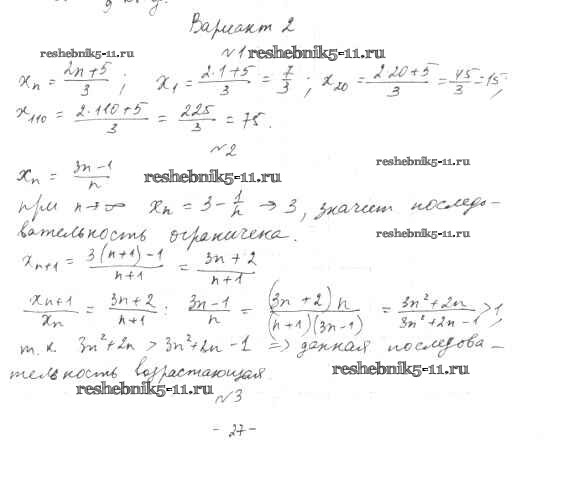 Вариант 2
reshebnik5-11.ru
№1 reshebnik5-11.ru
xₙ = (2n+5)/3 ; x₁ = (2·1+5)/3 = 7/3 ; x₂₀ = (2·20+5)/3 = 45/3 = 15;
x₁₁₀ = (2·110+5)/3 = 225/3 = 75.
№2
reshebnik5-11.ru
xₙ = (3n-1)/n reshebnik5-11.ru
при n→∞ xₙ = 3 - 1/n → 3, значит последо-
вательность ограничена.
reshebnik5-11.ru
xₙ₊₁ = (3(n+1)-1)/(n+1) = (3n+2)/(n+1)
xₙ₊₁/xₙ = (3n+2)/(n+1) : (3n-1)/n = ((3n+2)n)/((n+1)(3n-1)) = (3n²+2n)/(3n²+2n-1) > 1,
т.к. 3n²+2n > 3n²+2n-1 => данная последова-
тельность возрастающая.
reshebnik5-11.ru
reshebnik5-11.ru
№3
= 27-